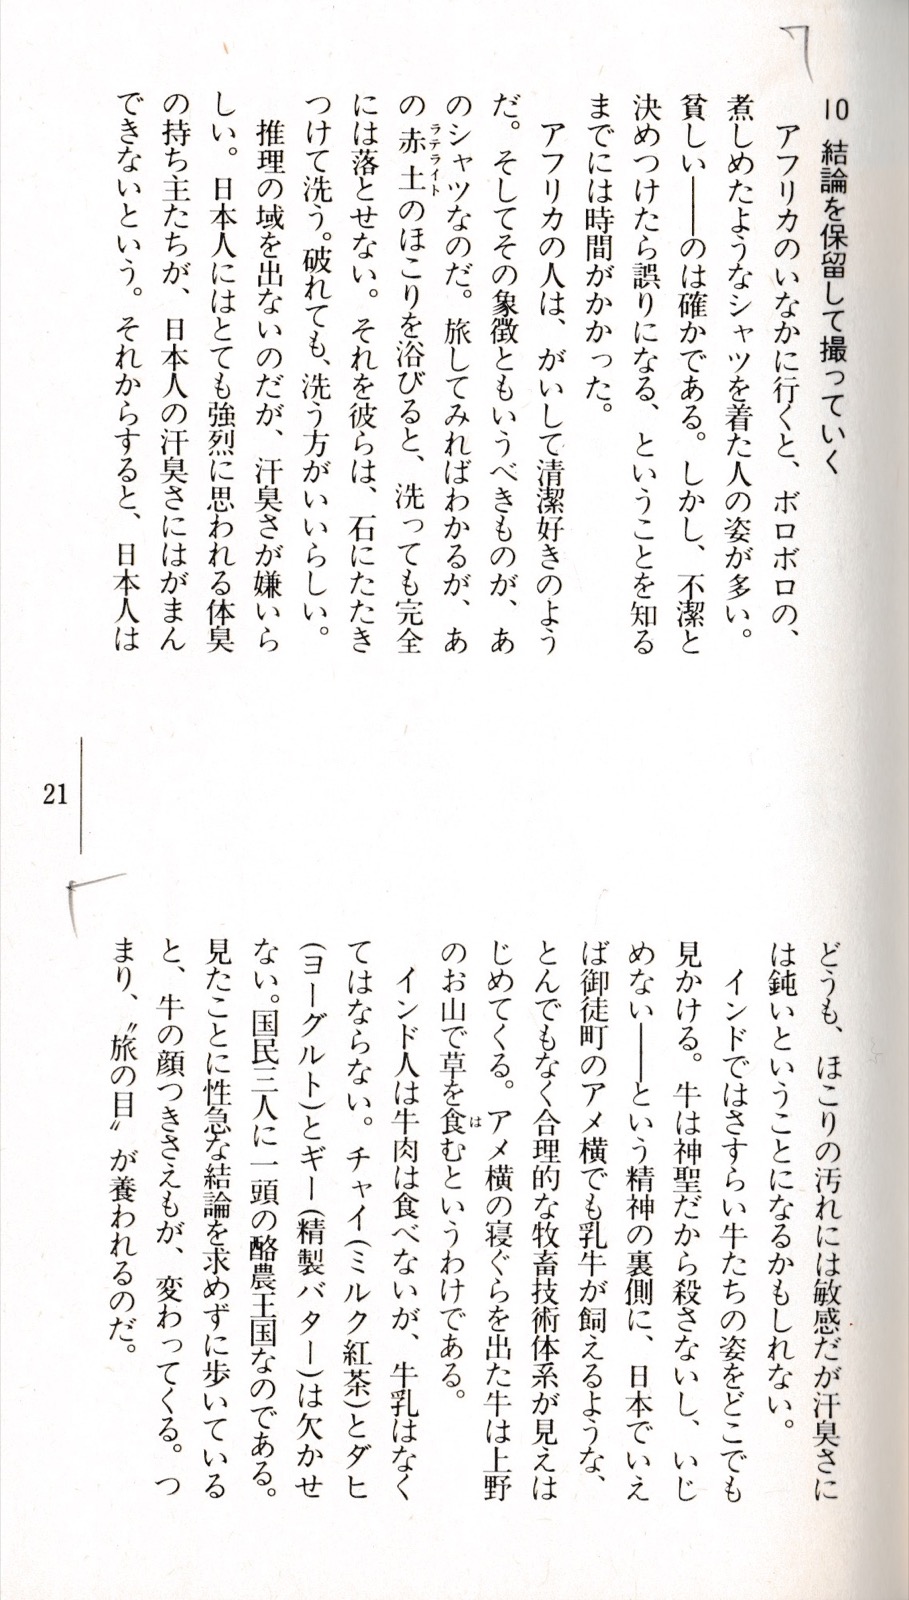 10 結論を保留して撮っていく
アフリカのいなかに行くと、ボロボロの、
煮しめたようなシャツを着た人の姿が多い。
貧しい――のは確かである。しかし、不潔と
決めつけたら誤りになる、ということを知る
までには時間がかかった。
アフリカの人は、がいして清潔好きのよう
だ。そしてその象徴ともいうべきものが、あ
のシャツなのだ。旅してみればわかるが、あ
の赤土のほこりを浴びると、洗っても完全
ラテライト
には落とせない。それを彼らは、石にたたき
つけて洗う。破れても、洗う方がいいらしい。
推理の域を出ないのだが、汗臭さが嫌いら
しい。日本人にはとても強烈に思われる体臭
の持ち主たちが、日本人の汗臭さにはがまん
できないという。それからすると、日本人は
21
どうも、ほこりの汚れには敏感だが汗臭さに
は鈍いということになるかもしれない。
インドではさすらい牛たちの姿をどこでも
見かける。牛は神聖だから殺さないし、いじ
めない――という精神の裏側に、日本でいえ
ば御徒町のアメ横でも乳牛が飼えるような、
とんでもなく合理的な牧畜技術体系が見えは
じめてくる。アメ横の寝ぐらを出た牛は上野
のお山で草を食むというわけである。
は
インド人は牛肉は食べないが、牛乳はなく
てはならない。チャイ(ミルク紅茶)とダヒ
(ヨーグルト)とギー(精製バター)は欠かせ
ない。国民三人に一頭の酪農王国なのである。
見たことに性急な結論を求めずに歩いている
と、牛の顔つきさえもが、変わってくる。つ
まり、〝旅の目〟が養われるのだ。